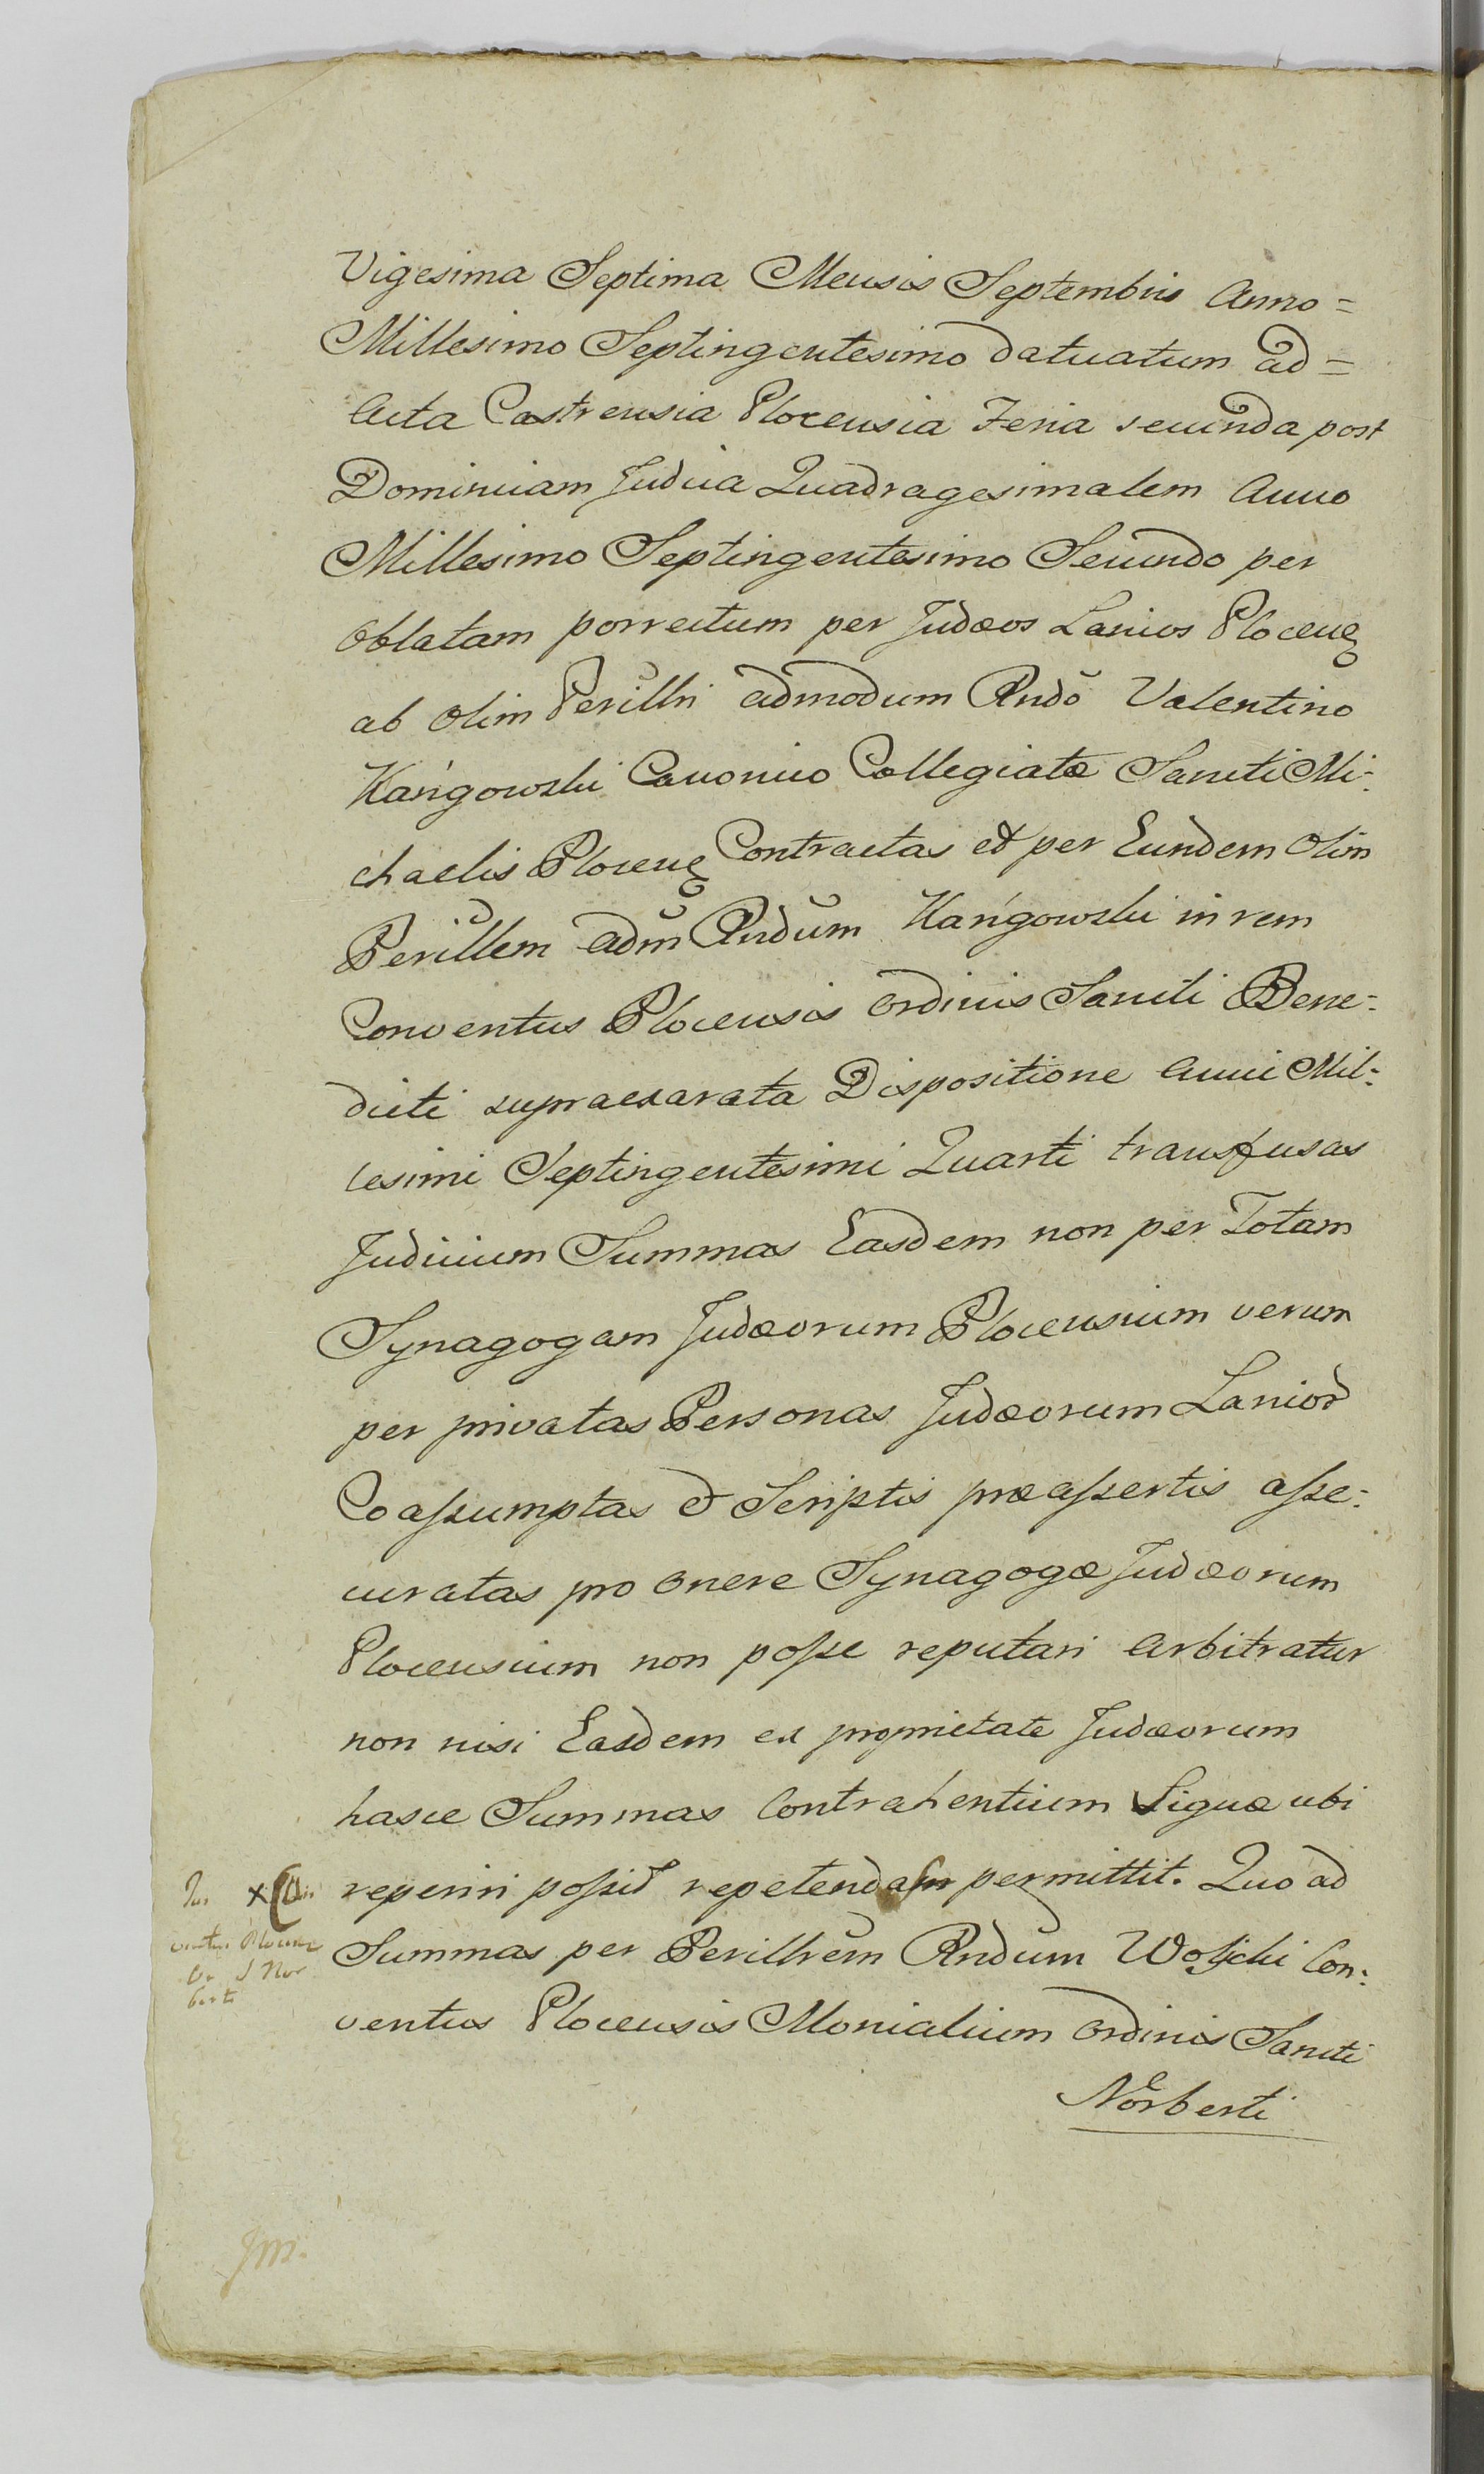 Vigesima Septima Mensis Septembris Anno=
Millesimo Septingentesimo datuatum ad=
Acta Castrensia Plocensia Feria secunda post
Dominicam Judica Quadragesimalem Anno
Millesimo Septingentesimo Secundo per
Oblatam porrectum per Judæos Lanios Plocen̄
ab olim Perillri admodum Rndō Valentino
Kańgowski Canonico Collegiatæ Sancti Mi:
chaelis Plocen̄ Contractas et per Eundem olim
Perillem adm̄ Rndūm Kańgowski in rem
Conventus Plocensis Ordinis Sancti Bene:
dicti supraexarata Dispositione Anni Mil:
lesimi Septingentesimi Quarti transfusas
Judicium Summas Easdem non per Totam
Synagogam Judæorum Plocensium verum
per privatas Personas Judæorum Lanior
Coaſsumptas & Scriptis præaſsertis aſse:
curatas pro onere Synagogæ Judæorum
Plocensium non poſse reputari arbitratur
non nisi Easdem ex proprietate Judæorum
hasce Summas Contrahentium Siquæ ubi
reperiri poſsit repetendas permittit. Quo ad
Summas per Perillrēm Rndūm Wolſchi Con:
ventus Plocensis Monialium Ordinis Sancti
Norberti